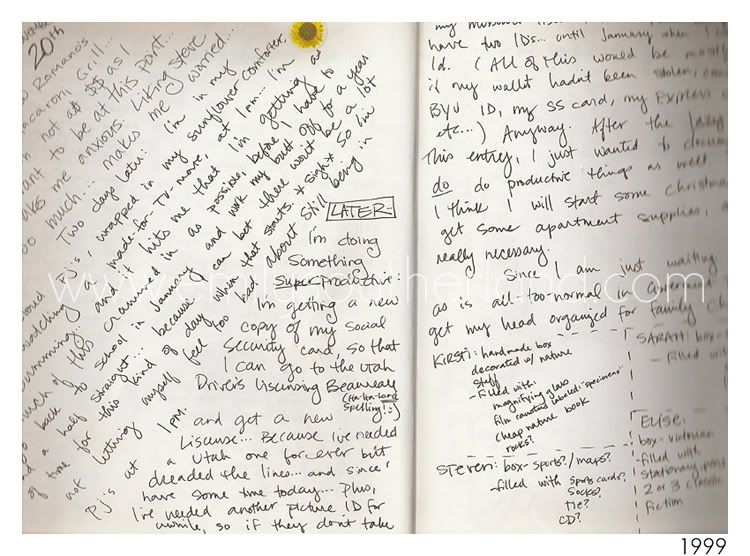 20th
Romano's
Macaroni Grill...
not at $$ as I
to be at this point...
me anxious. Liking Steve
much... makes me worried...
Two days later: I'm in my
PJ's, wrapped in my sunflower comforter,
watching a made-for-TV-movie, at 1pm... I'm
and it hits me that I'm getting as
much of this crammed in as possible, before I have to
go back to school in January and work my butt off for a year
and a half straight... because I can bet there won't be a lot
of time for this kind of day when that starts. *sigh* So I'm
not letting myself feel too bad about still being in
PJ's at 1PM.
LATER-
I'm doing
Something
Superproductive:
I'm getting a new
copy of my social
security card, so that
I can go to the Utah
Driver's Liscunsing Beaureau
(Ha-Ha-Ha-
Spelling!)
and get a new
Liscunse... Because I've needed
a Utah one for-ever but
dreaded the lines... and since I
have some time today... Plus,
I've needed another picture ID for
awhile, so if they don't take
my
have two IDs... until January when I
Id. (All of this would be
if my wallet hadn't been stolen,
BYU ID, my SS card, my Express
etc...) Anyway. After the lazy
this entry, I just wanted to
do do productive things as well.
I think I will start some Christmas
get some apartment supplies,
really necessary.
Since I am just waiting
as is all-too-normal in
get my head organized for family
Kirsti: handmade box
decorated w/ nature
stuff
- Filled with:
magnifying glass
film canister labeled: "specimens"
cheap nature book
rocks?
Steven: box- sports?/maps?
-filled with sports cards?
Socks?
Tie?
CD?
SARAH: box-
- Filled
Elise:
box-
-filled with
stationary,
2 or 3
fiction
1999